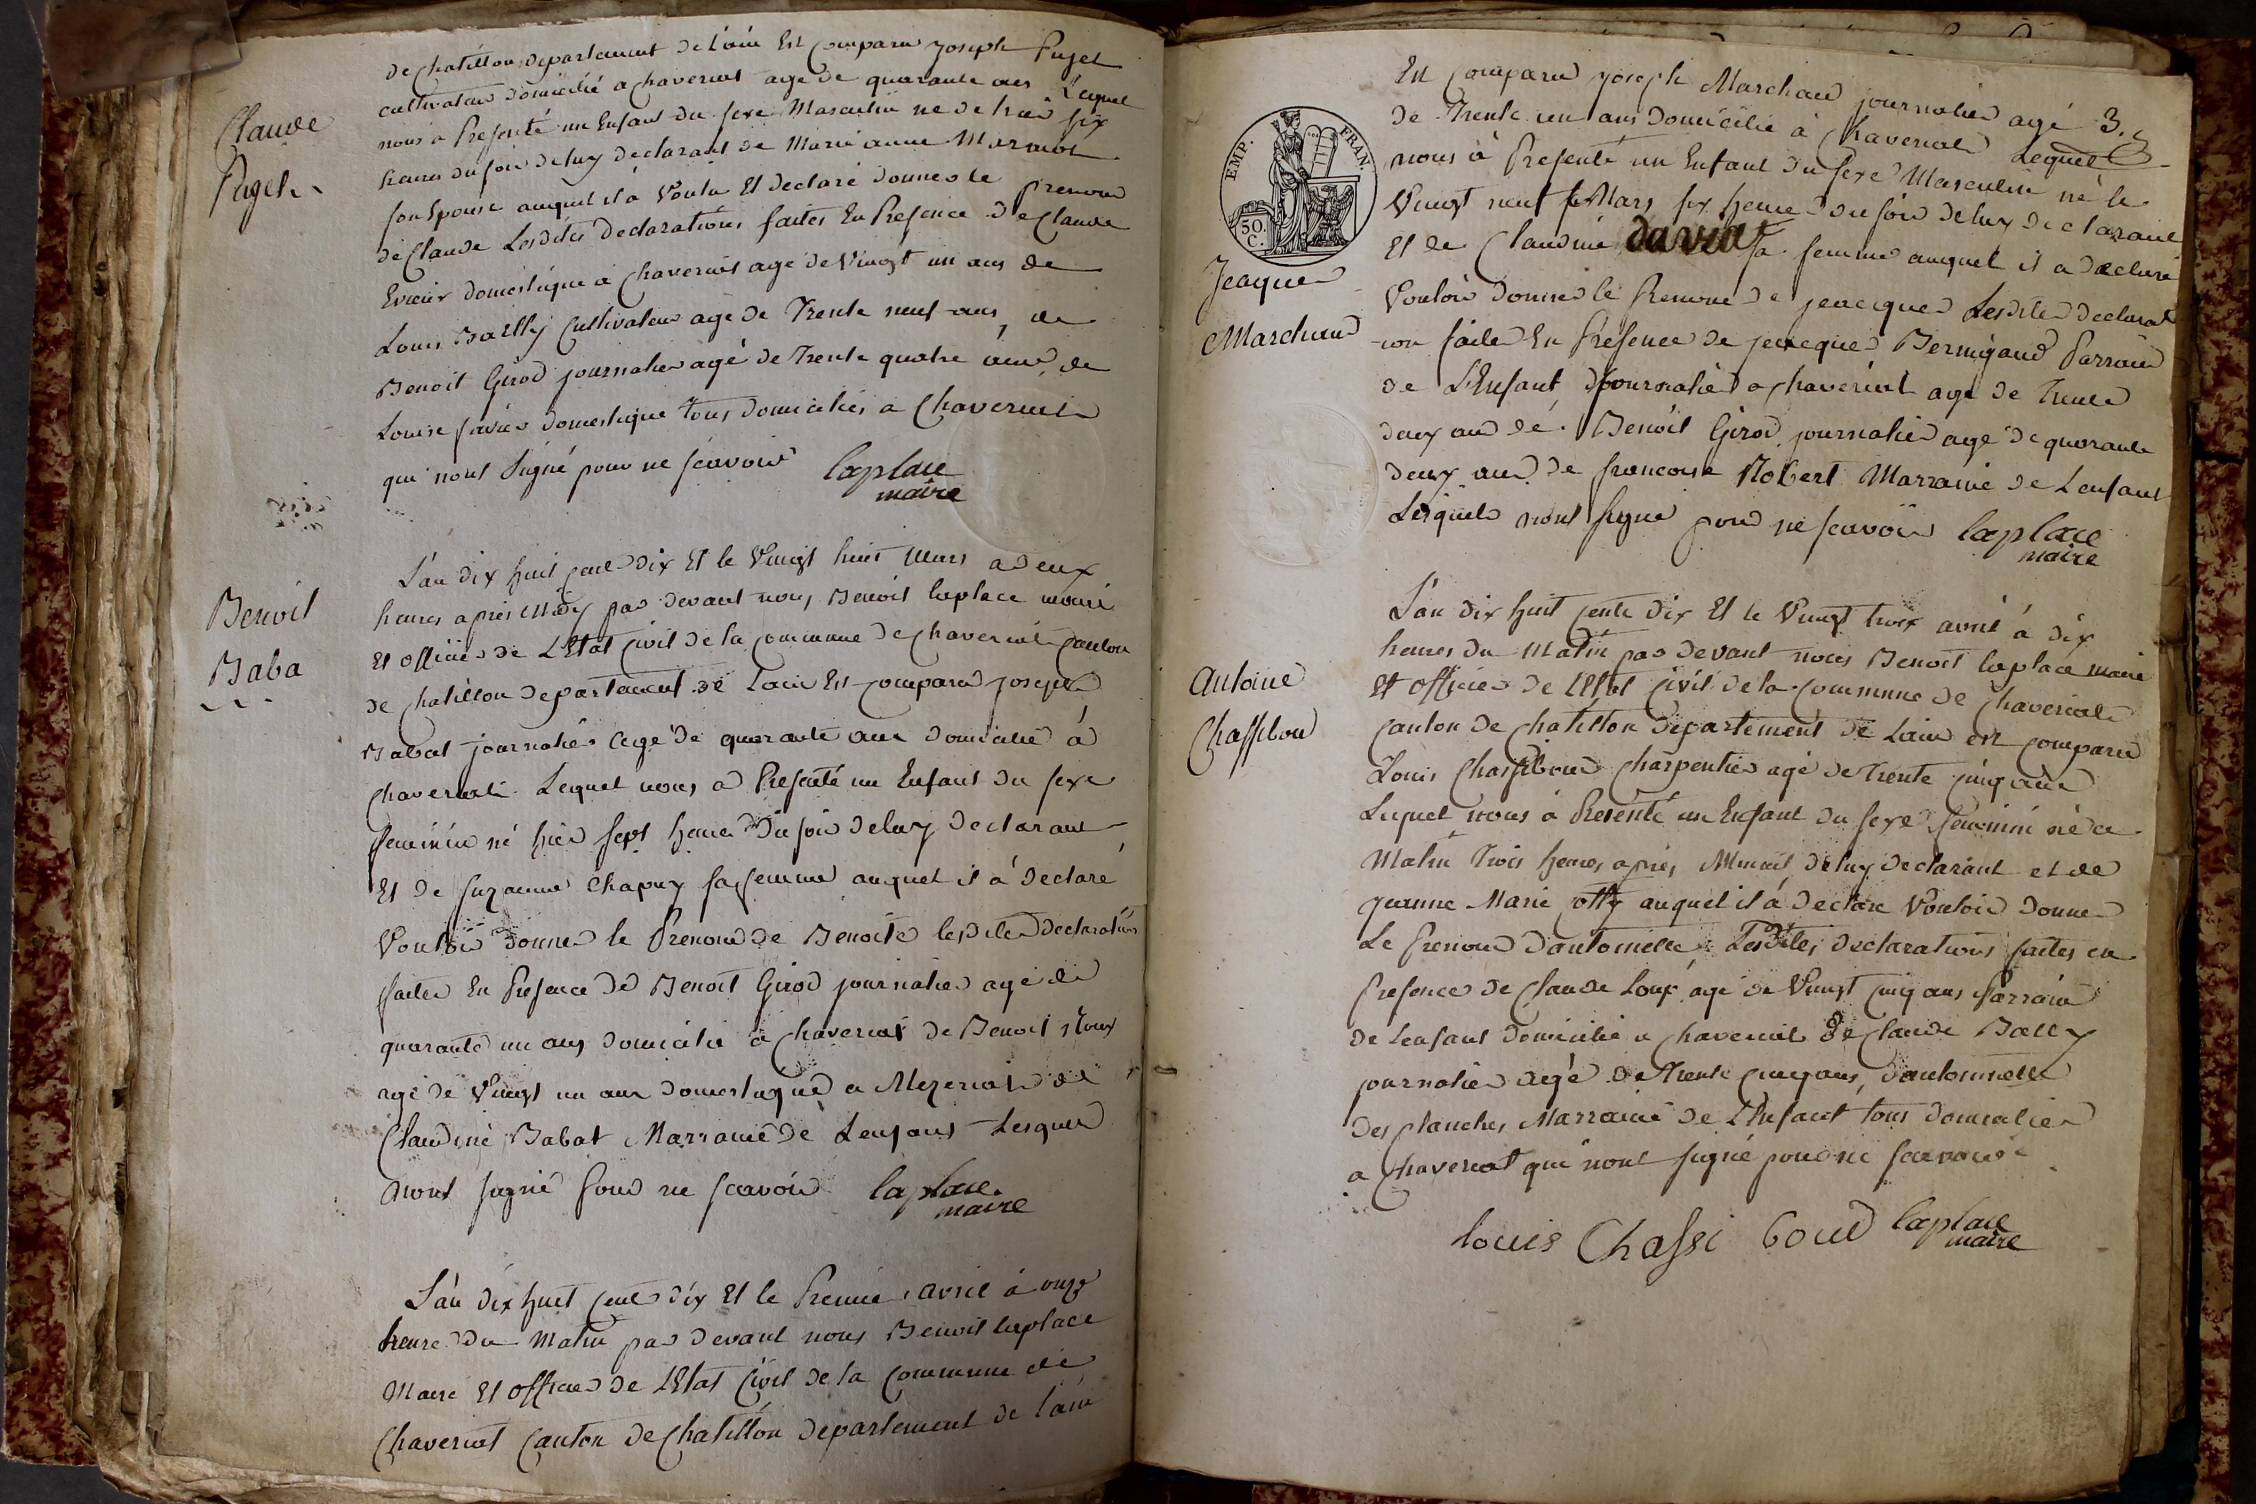 de Chatillon departement de Lain Est Comparu joseph Pujet
cultivateur domicilié a Chaveriat agé de quarante ans Lequel
nous a Presenté un Enfant du sexe Masculin né de hier six
heures du soir de luy declarant de Marie anne
son Epouse auquel il a Voulu Et declaré donner le prenom
de Claude Lesdites Declarations faites En Presence de Claude
domestique a Chaveriat agé de Vingt un ans de
Louis Bailly Cultivateur agé de Trente neuf ans, de
Benoit Girod journalier agé de Trente quatre ans, de
Louise domestique tous domiciliés a Chaveriat
qui nont Signé pour ne scavoir laplace
maire
Claude
Pujet
L'an dix huit cent dix Et le Vingt huit Mars a deux
heures apres Midy par devant nous, Benoit laplace maire
Et officier de L'Etat Civil de la Commune de Chaveriat Canton
de Chatillon departement de Lain Est Comparu joseph
Babat journalier agé de quarante ans domicilié à
Chaveriat Lequel nous a Presenté un Enfant du sexe
feminin né hier sept heures du soir de luy declarant
Et de Suzanne Chapuy sa femme auquel il a declaré
Vouloir donner le Prenom de Benoite lesdites declarations
faites En Presence de Benoit Girod journalier agé de
quarante un ans domicilié a Chaveriat de Benoit
agé de Vingt un ans domestique a Mezeriat de
Claudine Babat Marraine de Lenfant Lesquels
nont signé pour ne scavoir laplace
maire
Benoit
Baba
L'an dix huit cent dix Et le Premier avril à onze
heure du Matin par devant nous Benoit laplace
Maire Et officier de L'Etat Civil de la Commune de
Chaveriat Canton de Chatillon departement de Lain
EMP. FRAN.
50.
C.
Est Comparu joseph Marchand journalier agé 3.
de Trente un ans domicilié à Chaveriat Lequel
nous à Presenté un Enfant du sexe Masculin né le
Vingt neuf Mars six heure du soir de luy declarant
Et de Claudine david sa femme auquel il a declaré
Vouloir donner le Prenom de jeacques Lesdites declarat
ion faite En Presence de jeacques Bernigaud Parrain
de L'Enfant, journalier a Chaveriat agé de Trente
deux ans de Benoit Girod journalier agé de quarante
deux ans de francoise Robert Marraine de Lenfant
Lesquels nont signé pour ne scavoir laplace
maire
Jeaques
Marchand
L'an dix huit cent dix Et le Vingt trois avril à dix
heures du Matin par devant nous Benoit laplace maire
Et officier de L'Etat Civil de la Commune de Chaveriat
Canton de Chatillon departement de Lain est Comparu
Louis Chassiboud Charpentier agé de Trente cinq ans
Lequel nous à Presenté un Enfant du sexe feminin né ce
Matin Trois heures après Minuit de luy declarant et de
jeanne Marie auquel il à declaré Vouloir donner
Le Prenom dantoinette, Lesdites declarations faites en
Presence de Claude Loup agé de Vingt cinq ans Parrain
de Lenfant domicilié a Chaveriat de Claude Bally
journalier agé de Trente cinq ans, dantoinette
des planches Marraine de L'Enfant tous domiciliés
a Chaveriat qui nont signé pour ne scavoir
Antoine
Chassibou
louis Chassi boud laplace
maire